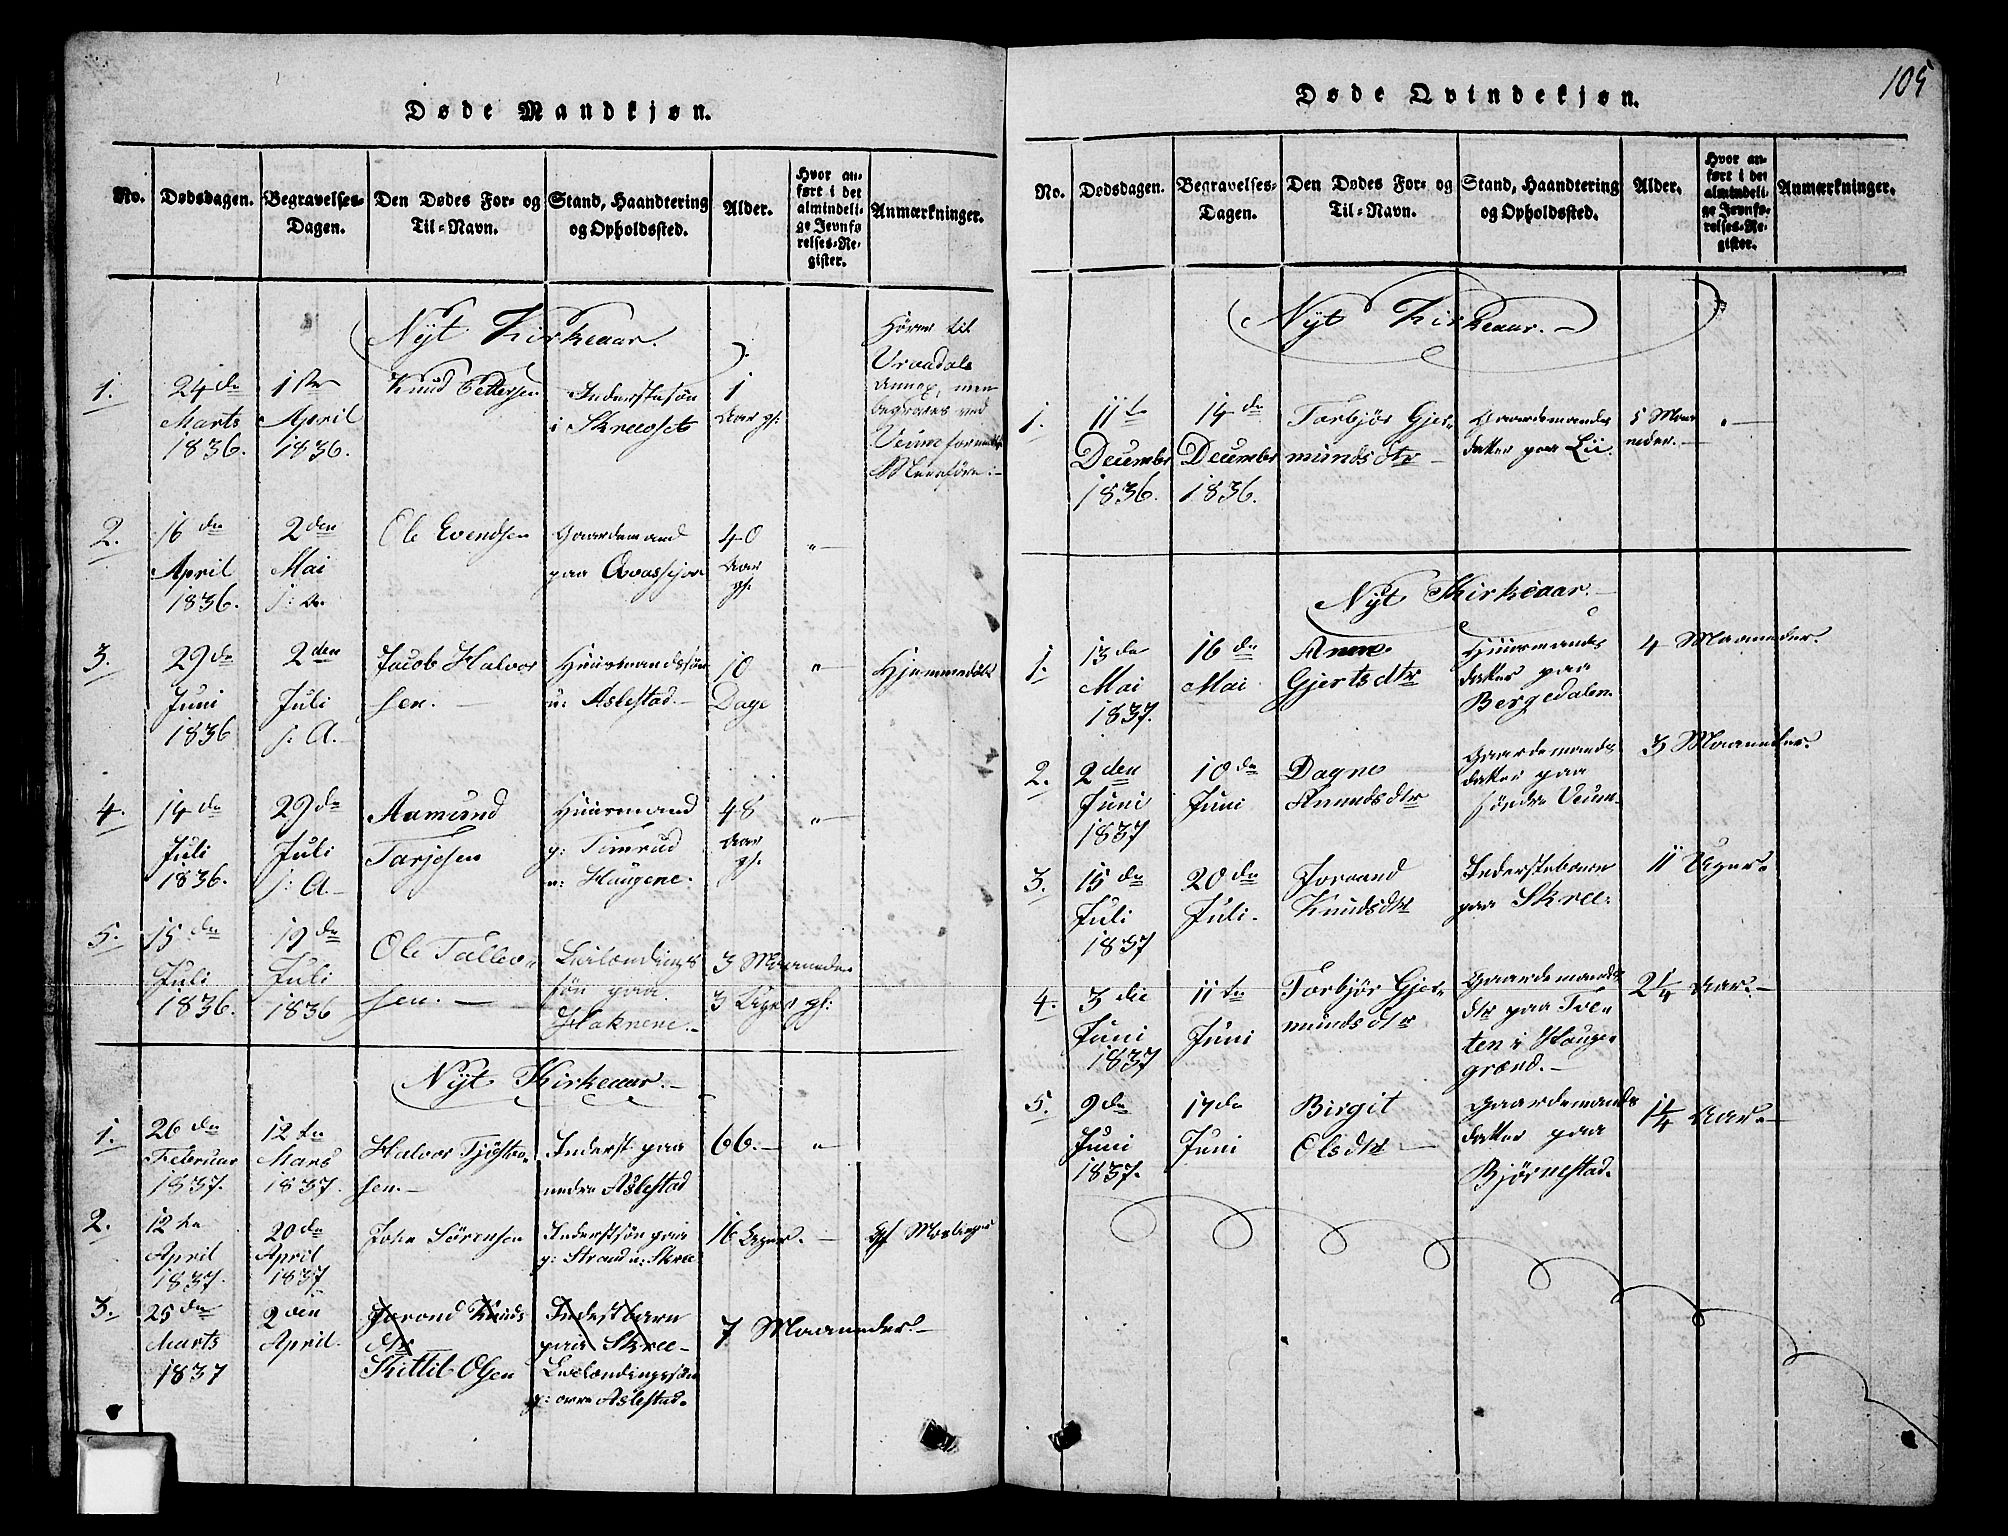 Døde Mandkjøn.
No.
Dødsdagen.
Begravelses-
Dagen.
Den Dødes For- og
Til-Navn.
Stand, Haandtering
og Opholdssted.
Alder.
Hvor an-
ført i det
almindeli-
ge Jevnfø
relses-Re-
gister.
Anmærkninger.
Nyt Kirkeaar.
1.
24de
Marts
1836.
1ste
April
1836.
Knud Pettersen
Inderstesøn
i Skreoset
1
Aar gl:
Hører til
Vraadals
Annex, men
begraves ved
Veume formedelst
2.
16de
April
1836.
2den
Mai
s: A.
Ole Evendsen
Gaardemand
paa
40
Aar
gl:
3.
29de
Juni
1836
2den
Juli
s: A.
Jacob Halvor
sen.
Huusmandssøn
u: Aslestad.
10
Dage
Hjemmedøbt
4.
14de
Juli
1836.
29de
Juli
s: A.
Aamund
Tarjesen
Huusmand
p: Timrud
u: Haugene.
48
Aar
gl:
5.
15de
Juli
1836.
19de
Juli
1836
Ole Tallev-
sen.
Leilendings
søn paa
Haknene.
3 Maaneder
3 Uger gl:
Nyt Kirkeaar.
1.
26de
Februar
1837.
12te
Mars
1837.
Halvor Tjøsto-
sen.
Inderst paa
nedre Aslestad
66.
2.
12te
April
1837.
20de
April
1837
John Sörensen
Inderstsøn paa
p: Strand u: Skree
16 Uger.
3.
25de
Marts
1837
2den
April.
Jorond Knuds
dtr
Kittil Olsen
Inderstbarn
paa Skree
Leilændingssøn
p: øvre Aslestad.
7 Maaneder.
105
Døde Qvindekjøn.
No.
Dødsdagen.
Begravelses-
Dagen.
Den Dødes For- og
Til-Navn.
Stand, Haandtering
og Opholdssted.
Alder.
Hvor an-
ført i det
almindeli-
ge Jevnfø-
relses-Re-
gister.
Anmærkninger.
Nyt Kirkeaar.
1.
11te
Decembr
1836.
14de
Decembr
1836.
Torbjør Gjer-
munds dtr
Gaardemands
datter paa Lii.
5 Maa-
neder.
Nyt Kirkeaar.
1.
13de
Mai
1837.
16de
Mai
Anne
Gjertsdtr
Huusmands
datter paa
Bergedalen
4 Maaneder.
2.
2den
Juni
1837
10de
Juni
Dagne
Amundsdtr
Gaardemands
datter paa
søndre Veum.
3 Maaneder.
3.
15de
Juli
1837
20de
Juli.
Joraand
Knudsdtr
Inderstebarn
paa Skree.
11 Uger.
4.
3die
Juni
1837
11te
Juni
Torbjør Gjer-
mundsdtr
Gaardemands
dtr paa Tve-
ten i Hauge-
grænd.
2 1/4 Aar.
5.
9de
Juni
1837.
17de
Juni
Birgit
Olsdtr
Gaardemands
datter paa
Bjørnestad.
1 1/4 Aar.